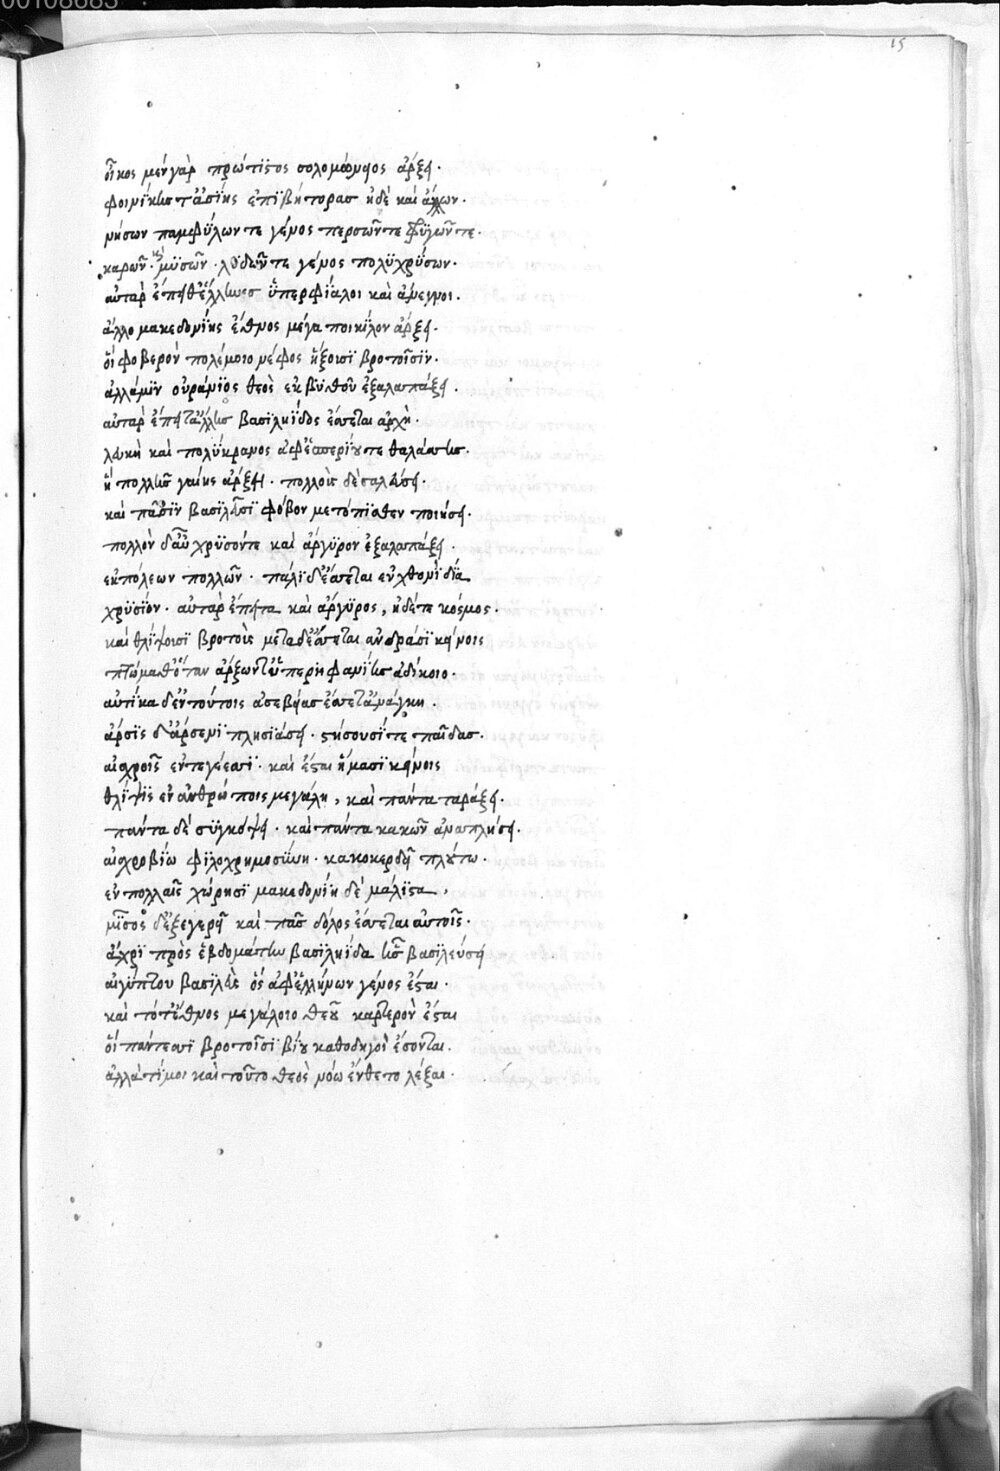 00108685
15
οἶκος μὲν γὰρ πρώτιστος σολομώνιος ἄρξει·
φοινίκης τ' ἀσίης ἐπιβήτορας ἠδὲ καὶ ἄλλων·
νήσων παμφύλων τε γένος περσῶν τε φρυγῶν τε·
καρῶν· καὶ μυσῶν· λυδῶν τε γένος πολυχρύσων·
αὐτὰρ ἔπειθ' ἕλληνες ὑπερφίαλοι καὶ ἄναγνοι·
ἄλλο μακεδονίης ἔθνος μέγα ποικίλον ἄρξει·
οἳ φοβερὸν πολέμοιο νέφος ἥξουσι βροτοῖσιν·
ἀλλά μιν οὐράνιος θεὸς ἐκ βυθοῦ ἐξαλαπάξει·
αὐτὰρ ἔπειτ' ἄλλης βασιληΐδος ἔσσεται ἀρχὴ·
λευκὴ καὶ πολύκρανος ἀφ' ἑσπερίου τε θαλάσσης·
ἣ πολλῆς γαίης ἄρξει· πολλοὺς δὲ σαλεύσει·
καὶ πᾶσιν βασιλεῦσι φόβον μετόπισθεν ποιήσει·
πολλὸν δ' αὖ χρυσόν τε καὶ ἄργυρον ἐξαλαπάξει·
ἐκ πόλεων πολλῶν· πάλι δ' ἔσσεται ἐν χθονὶ δῖα
χρυσίον· αὐτὰρ ἔπειτα καὶ ἄργυρος, ἠδέ τε κόσμος·
καὶ θλίψουσι βροτοὺς μέγα δ' ἔσσεται ἀνδράσι κείνοις
πτῶμα θ' ὅταν ἄρξωντ' ὑπερηφανίης ἀδίκοιο·
αὐτίκα δ' ἐν τούτοις ἀσεβείας ἔσσετ' ἀνάγκη·
ἄρσης δ' ἄρσενι πλησιάσει· στήσουσί τε παῖδας·
αἰσχροῖς ἐν τεγέεσσι· καὶ ἔσται ἤμασι κείνοις
θλίψις ἐν ἀνθρώποις μεγάλη, καὶ πάντα ταράξει·
πάντα δὲ συγκόψει· καὶ πάντα κακῶν ἀναπλήσει·
αἰσχροβίῳ φιλοχρημοσύνῃ· κακοκερδεῖ πλούτῳ·
ἐν πολλαῖς χώρῃσι μακεδονίῃ δὲ μάλιστα,
μῖσος δ' ἐξεγερεῖ καὶ πᾶς δόλος ἔσσεται αὐτοῖς·
ἄχρι πρὸς ἑβδομάτην βασιληίδα ἧς βασιλεύσει
αἰγύπτου βασιλεὺς ὃς ἀφ' ἑλλήνων γένος ἔσται·
καὶ τότ' ἔθνος μεγάλοιο θεοῦ καρτερὸν ἔσται
οἳ πάντεσσι βροτοῖσι βίου καθοδηγοὶ ἔσονται·
ἀλλὰ τί μοι καὶ τοῦτο θεὸς νόῳ ἔνθετο λέξαι·